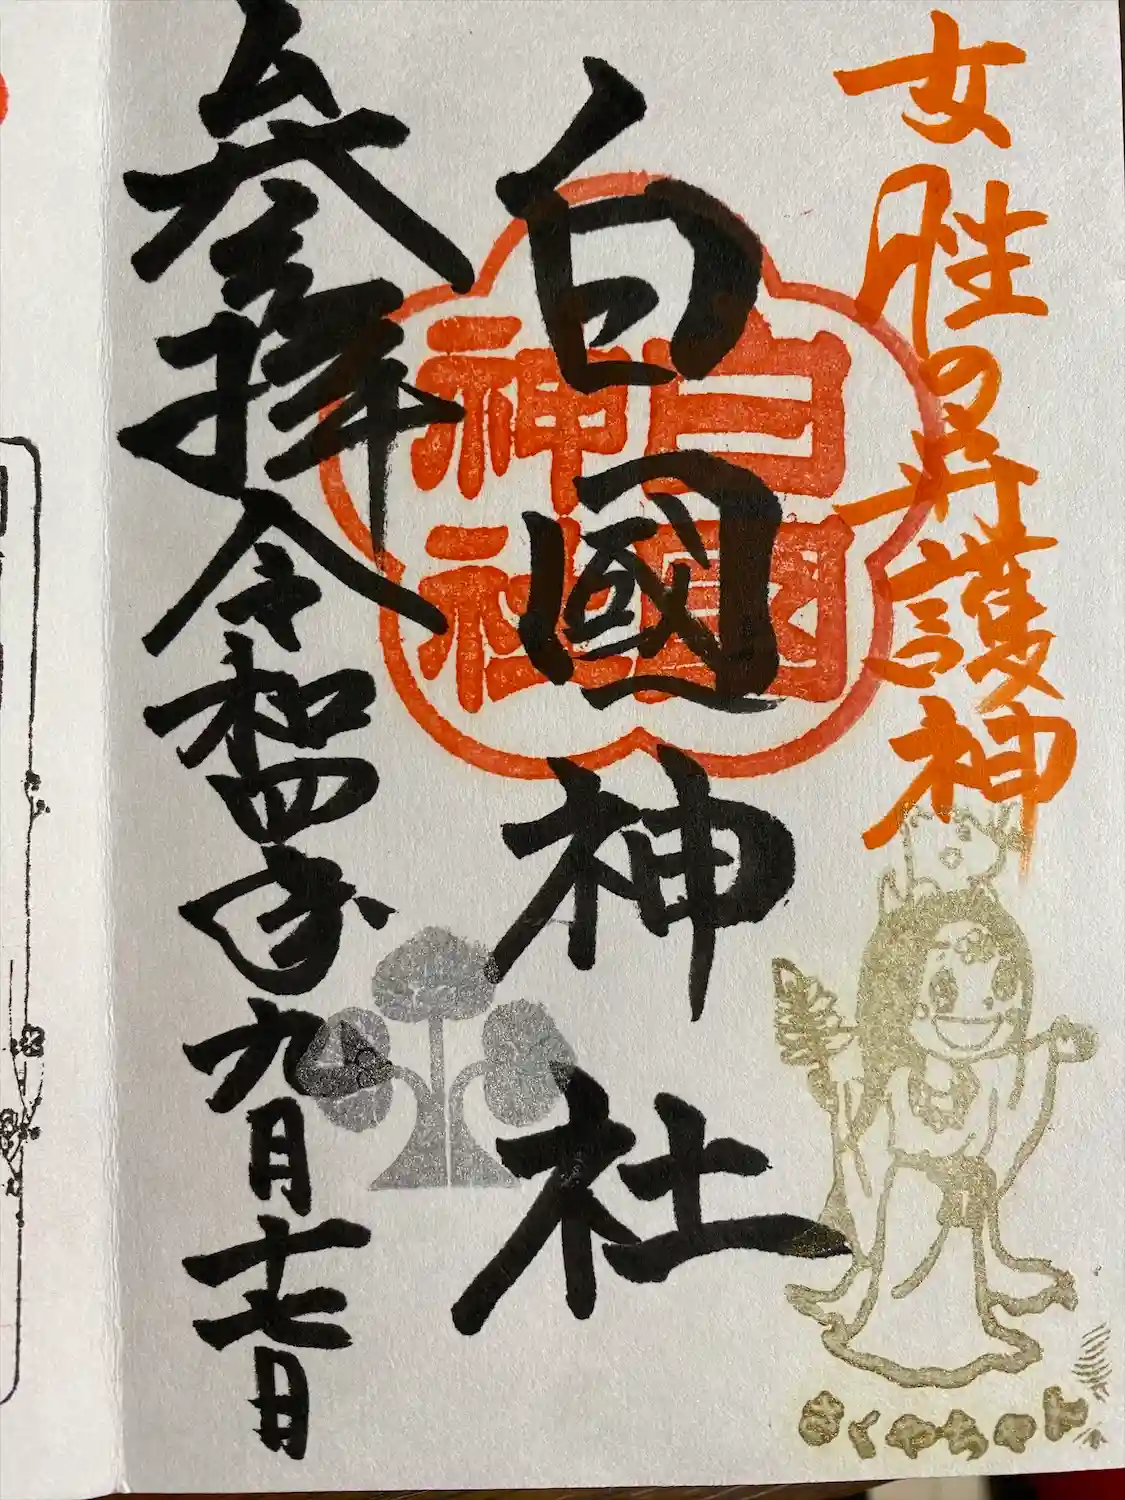 女性の守護神
白國神社
白國
神社
参拝令和四年九月十七日
さくやちゃん